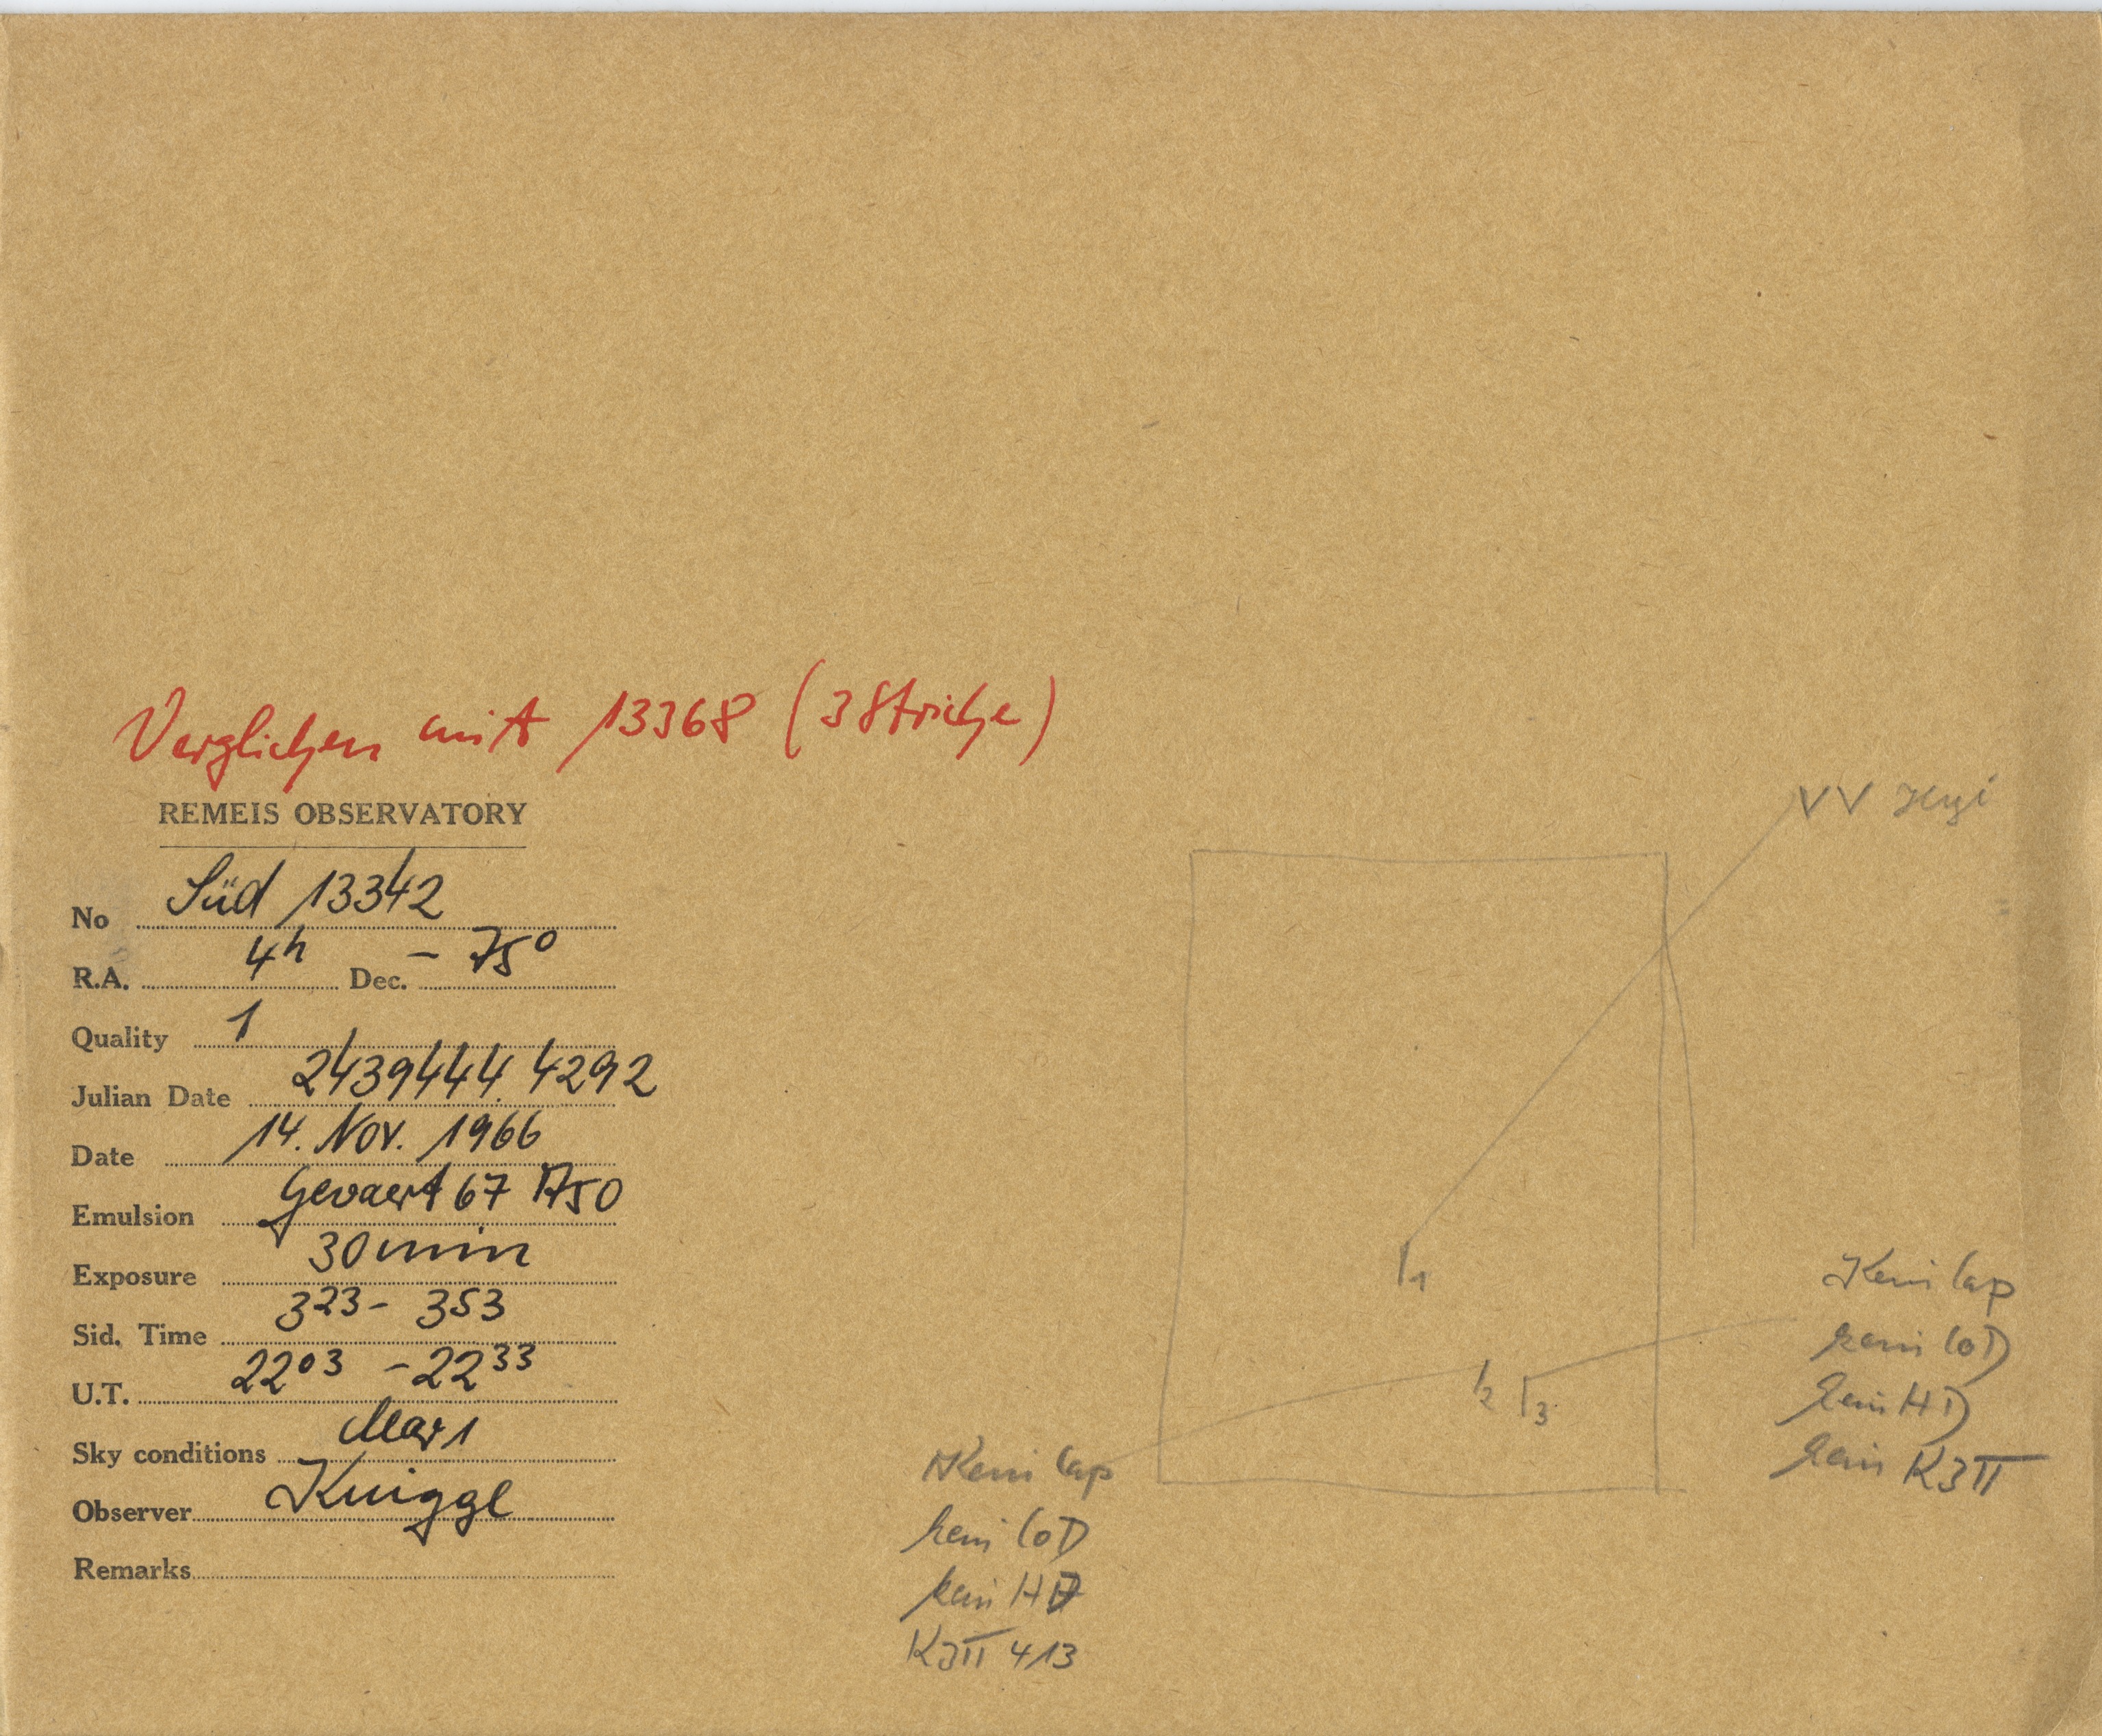 Verglichen mit 13368 (3 Striche)
REMEIS OBSERVATORY
No Süd 13342
R.A. 4h Dec. - 75°
Quality 1
Julian Date 2439444.4292
Date 14. Nov. 1966
Emulsion Gevaert 67 A50
Exposure 30 min
Sid. Time 3 23 - 3 53
U.T. 22 03 - 22 33
Sky conditions
Observer Kniggl
Remarks
VV Hyi
1
2
3
Kein Cap
kein CoD
kein HD
kein KZII
Kein Cap
kein CoD
kein HD
KZII 413